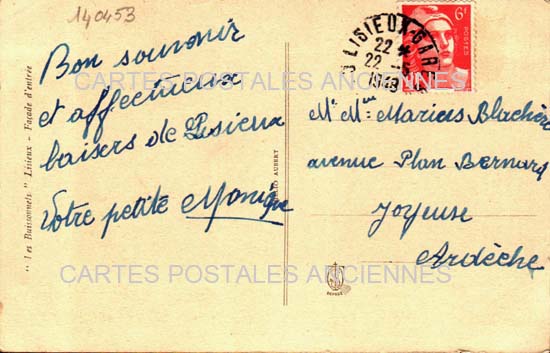 140453
Bon souvenir
et affectueux
baisers de Lisieux
Votre petite Monique
"Les Buissonnets" Lisieux - Façade d'entrée
AUBERT
LISIEUX-GARE
22 *
22 -5
1949
6F
POSTES
Mr Mme Marius Blachère
avenue Plan Bernard
Joyeuse
Ardèche
CARTES POSTALES ANCIENNES
CARTES POSTALES ANCIENNES